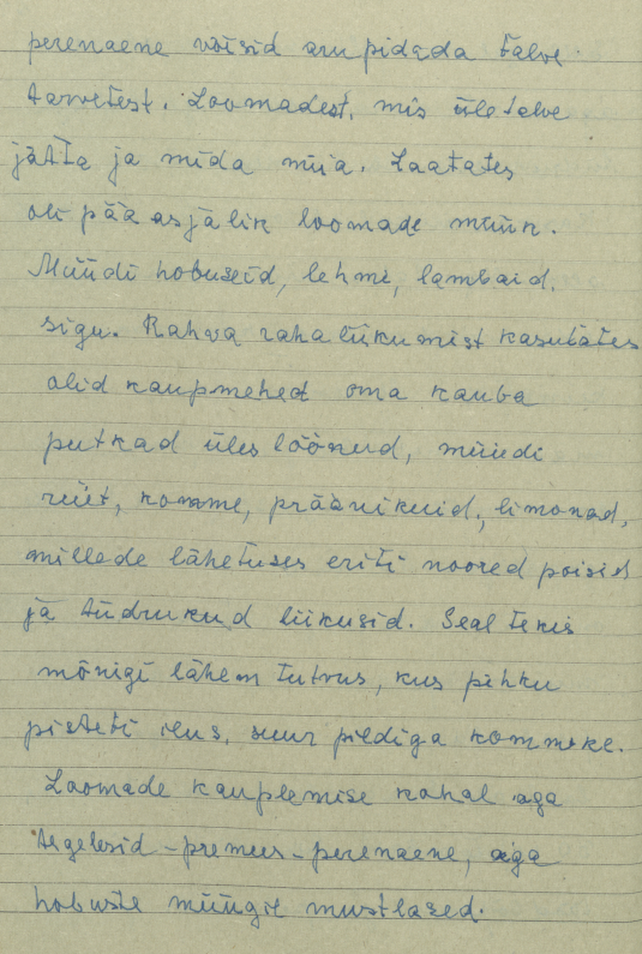 perenaene võisid aru pidada talve
tarvetest. Loomadest, mis üle talve
jätta ja mida müia. Laatates
oli pää asjalik loomade müük.
Müüdi hobuseid, lehmi, lambaid,
sigu. Rahva raha liikumist kasutates
olid kaupmehed oma kauba
putkad üles löönud, müüdi
riiet, komme, präänikuid, limonad,
millede läheduses eriti noored poisid
ja tüdrukud liikusid. Seal tekis
mõnigi lähem tutvus, kus pihku
pisteti ilus, suur pildiga kommike.
Loomade kauplemise kohal aga
tegelesid - premees - perenaene, aga
hobuste müügil mustlased.